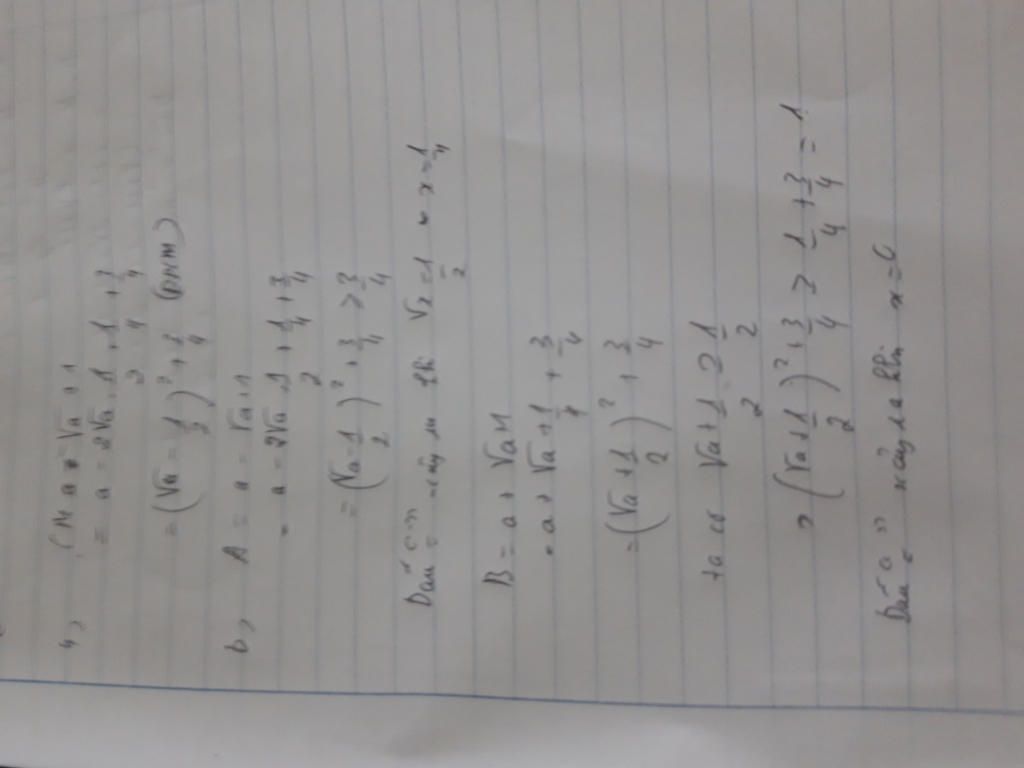 a, CM a - √a + 1
= a - 2√a . 1/2 + 1/4 + 3/4
= (√a - 1/2)² + 3/4 (ĐPCM)
b, A = a - √a + 1
= a - 2√a . 1/2 + 1/4 + 3/4
= (√a - 1/2)² + 3/4 ≥ 3/4
Dấu "=" xảy ra khi √x = 1/2 x = 1/4
B = a + √a + 1
= a + √a + 1/4 + 3/4
= (√a + 1/2)² + 3/4
ta có √a + 1/2 ≥ 1/2
(√a + 1/2)² + 3/4 ≥ 1/4 + 3/4 = 1
Dấu "=" xảy ra khi x = 0